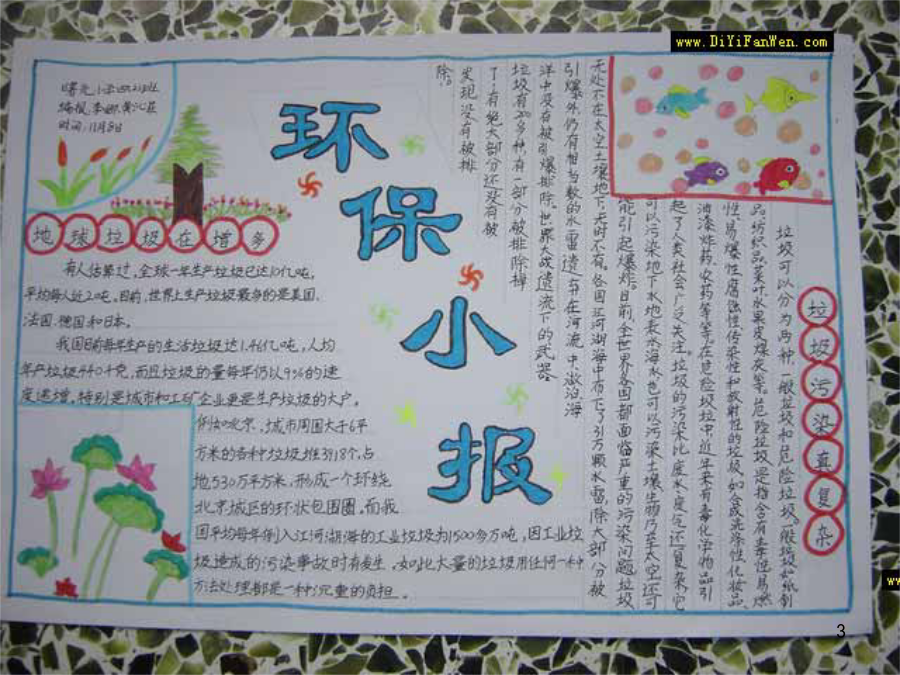 www.DiYiFanWen.com
曙光小学四(2)班
编报:李娜、黄沁蕊
时间:11月8日
环保小报
地球垃圾在增多
有人估算过,全球一年生产垃圾已达10亿吨,
平均每人近2吨。目前,世界上生产垃圾最多的是美国、
法国、德国和日本。
我国目前每年生产的生活垃圾达1.46亿吨,人均
年产垃圾440千克,而且垃圾的量每年仍以9%的速
度递增。特别是城市和工矿企业更是生产垃圾的大户。
例如北京,城市周围大于6平
方米的各种垃圾堆3118个,占
地530万平方米,形成一个环绕
北京城区的环状包围圈。而我
国平均每年倒入江河湖海的工业垃圾为1500多万吨,因工业垃
圾造成的污染事故时有发生,如此大量的垃圾用任何一种
方法处理都是一种沉重的负担。
垃圾污染真复杂
垃圾可以分为两种,一般垃圾和危险垃圾。一般垃圾如纸制
品、纺织品、菜叶、水果皮、煤灰等。危险垃圾是指含有毒性、易燃
性、易爆性、腐蚀性、传染性和放射性的垃圾,如合成洗涤性、化妆品、
油漆、炸药、农药等等。在危险垃圾中,近年来有毒化学物品引
起了人类社会广泛关注。垃圾的污染比废水、废气还复杂,它
可以污染地下水、地表水、海水,也可以污染土壤、生物乃至太空,还可
能引起爆炸。目前,全世界各国都面临严重的污染问题,垃圾
无处不在,太空、土壤、地下,无时不有。各国江河湖海中布下了31万颗水雷,除大部分被
引爆外,仍有相当数的水雷遗存在河流中,激沿海
洋中没有被引爆排除,世界大战遗流下的武器
垃圾有20多种,有一部分被排除掉
了,有绝大部分还没有被
发现,没有被排
除。
3